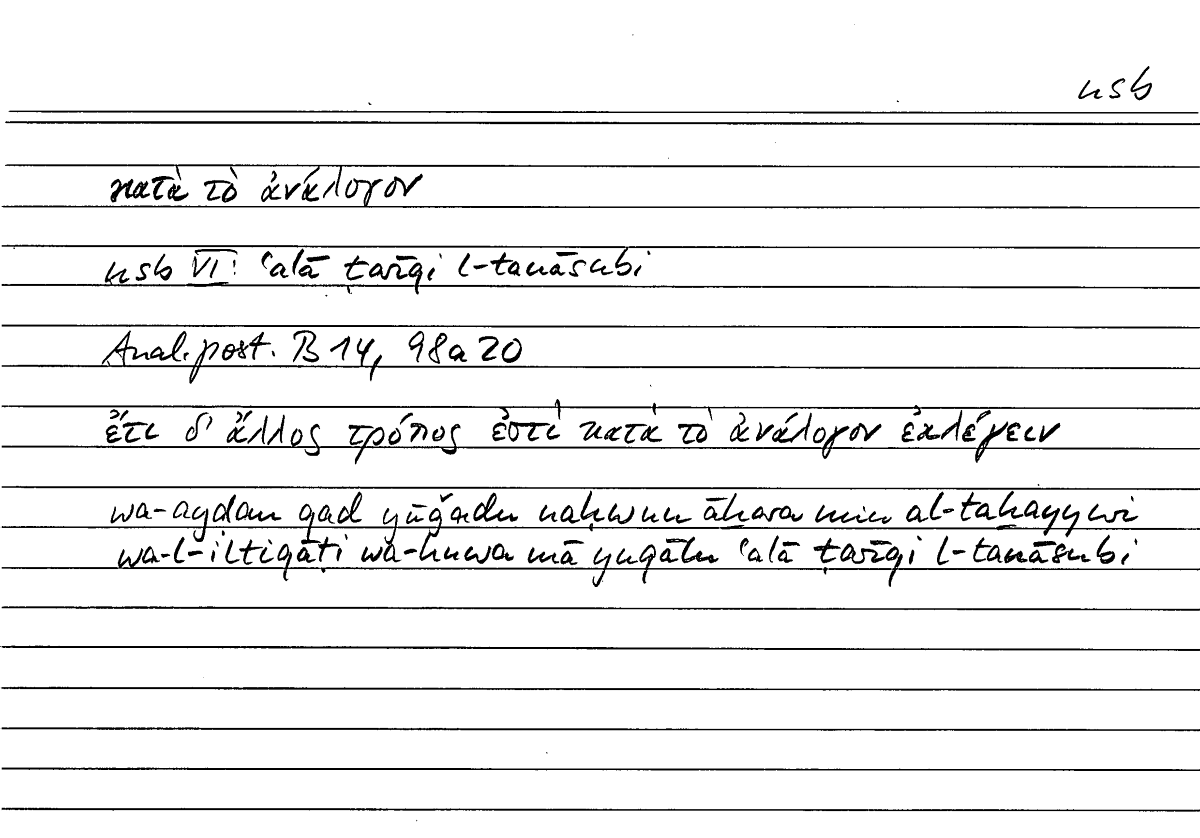 nsb
κατὰ τὸ ἀνάλογον
nsb VI: ʿalā ṭarīqi l-tanāsubi
Anal. post. B 14, 98a20
ἔτι δ' ἄλλος τρόπος ἐστὶ κατὰ τὸ ἀνάλογον ἐκλέγειν
wa-ayḍan qad yūǧadu naḥwun āḫara min al-taḫayyuri
wa-l-iltiqāṭi wa-huwa mā yuqālu ʿalā ṭarīqi l-tanāsubi